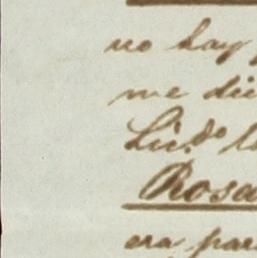 no hay
me di
Lic.do
Rosa
era par